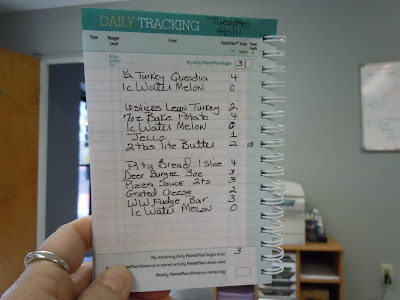 DAILY TRACKING
Tuesday
Time Hunger Level Food PointsPlus Value
My daily PointsPlus Target 31
½ Turkey Quesdia 4
1c Water Melon 0
6 slices Lean Turkey 2
7oz Bake Potato 4
1c Water Melon 0
Jello 1
2 tbs lite Butter 2
Pita Bread 1 slice 4
Deer Burger 3oz 3
Pizza Sauce 2tbs 3
Grated Cheese 2
WW Fudge Bar 3
1c Water Melon 0
My remaining daily PointsPlus Target total 3
PointsPlus Allowance or earned activity PointsPlus values used
Weekly PointsPlus Allowance remaining